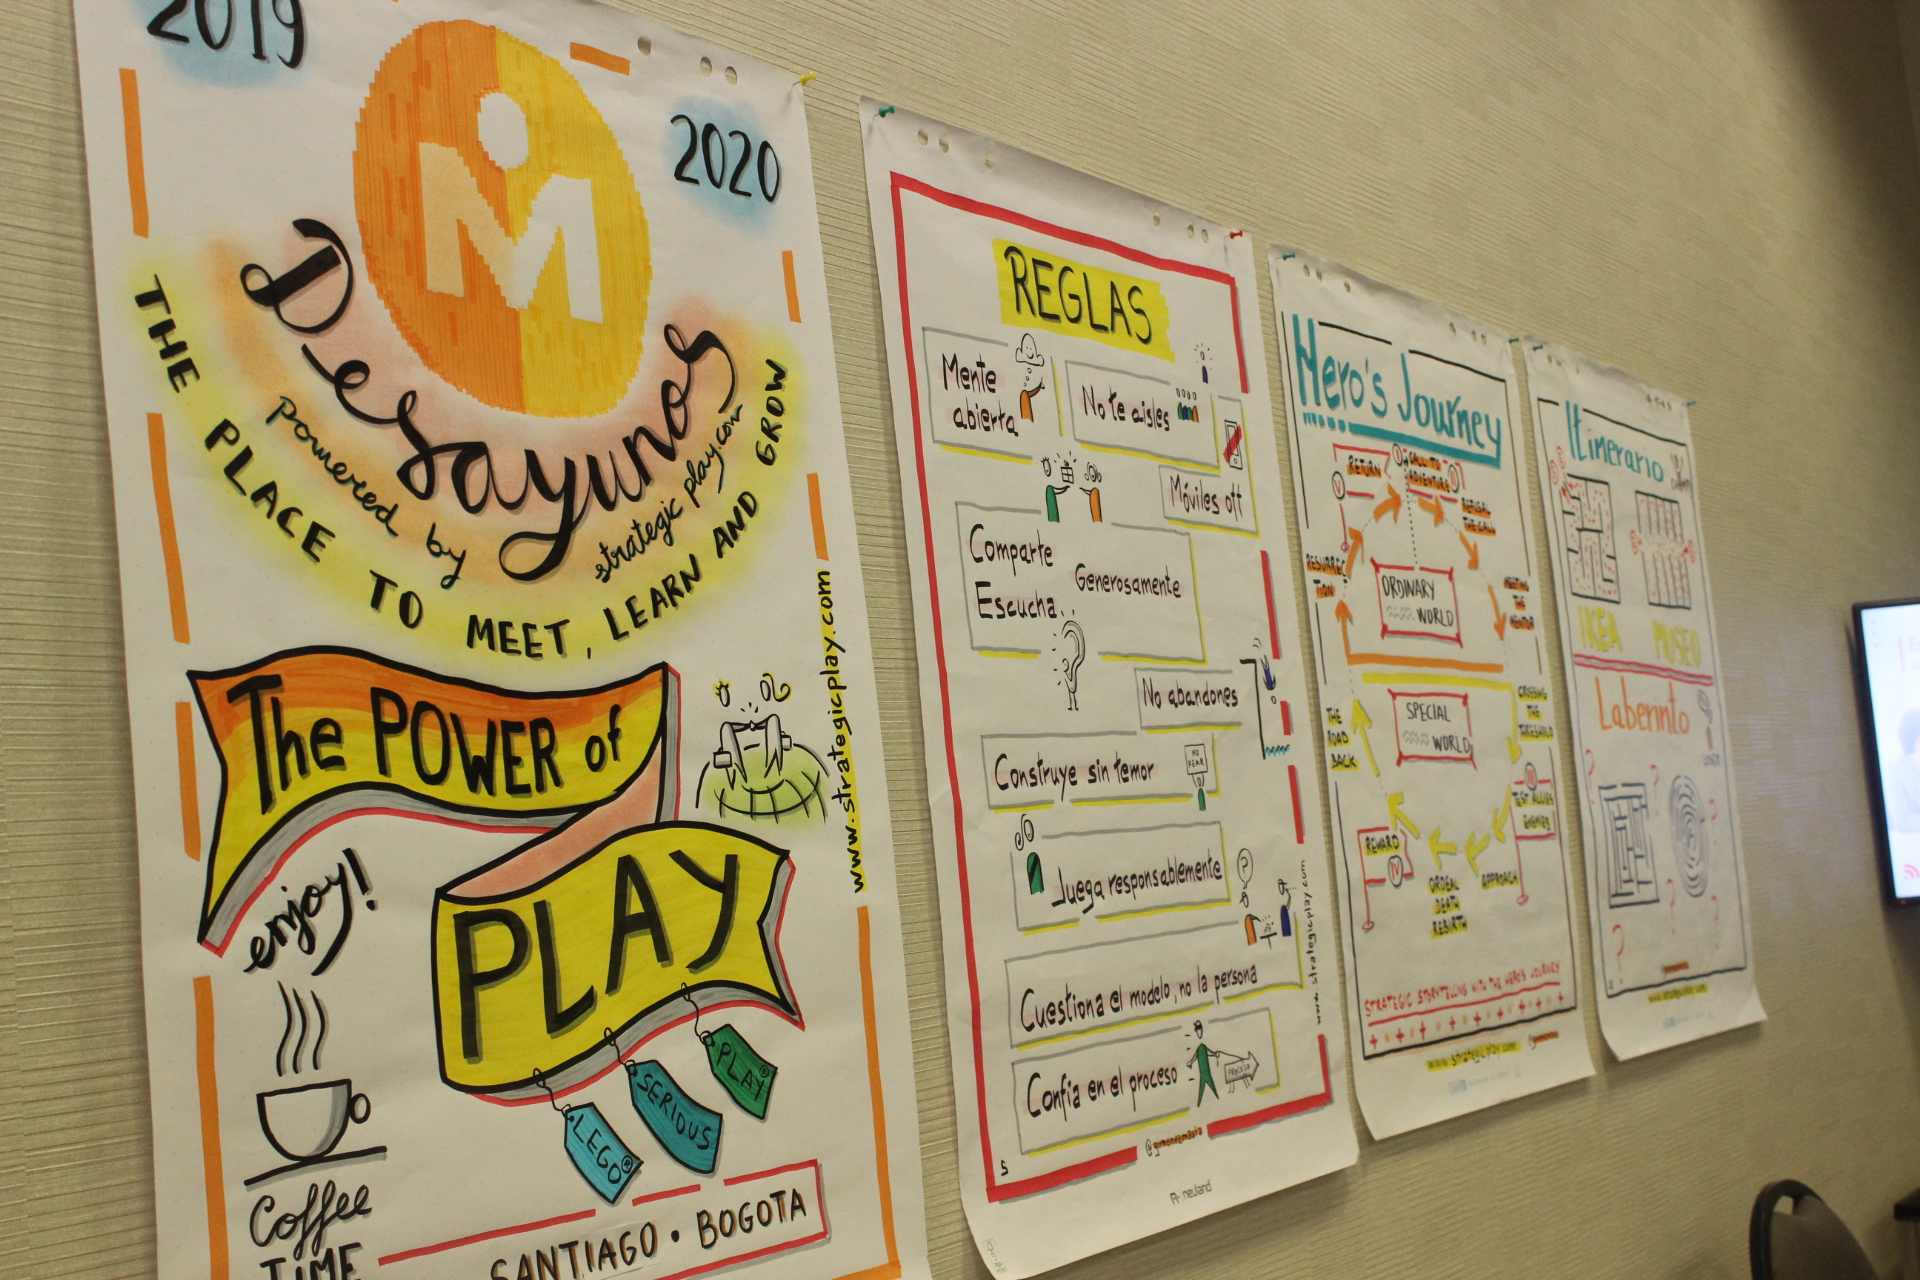 2019
2020
M
Desayunos
powered by strategicplay.com
THE PLACE TO MEET, LEARN AND GROW
The POWER of
PLAY
www.strategicplay.com
enjoy!
LEGO®
SERIOUS
PLAY®
Coffee
TIME
SANTIAGO • BOGOTA
REGLAS
Mente
abierta
No te aisles
Móviles off
Comparte
Escucha
Generosamente
No abandones
Construye sin temor
NO
FEAR
Juega responsablemente
Cuestiona el modelo, no la persona
Confía en el proceso
PROCESO
www.strategicplay.com
@gimenezmasia
5
neuland
Hero's Journey
RETURN
CALL TO
ADVENTURE
REFUSAL
THE CALL
MEETING
THE
MENTOR
RESURREC
TION
ORDINARY
WORLD
SPECIAL
WORLD
CROSSING
THE
THRESHOLD
THE
ROAD
BACK
TEST ALLIES
ENEMIES
REWARD
IV
APPROACH
ORDEAL
DEATH
REBIRTH
STRATEGIC STORYTELLING WITH THE HERO'S JOURNEY
www.strategicplay.com
Itinerario
IKEA
MUSEO
Laberinto